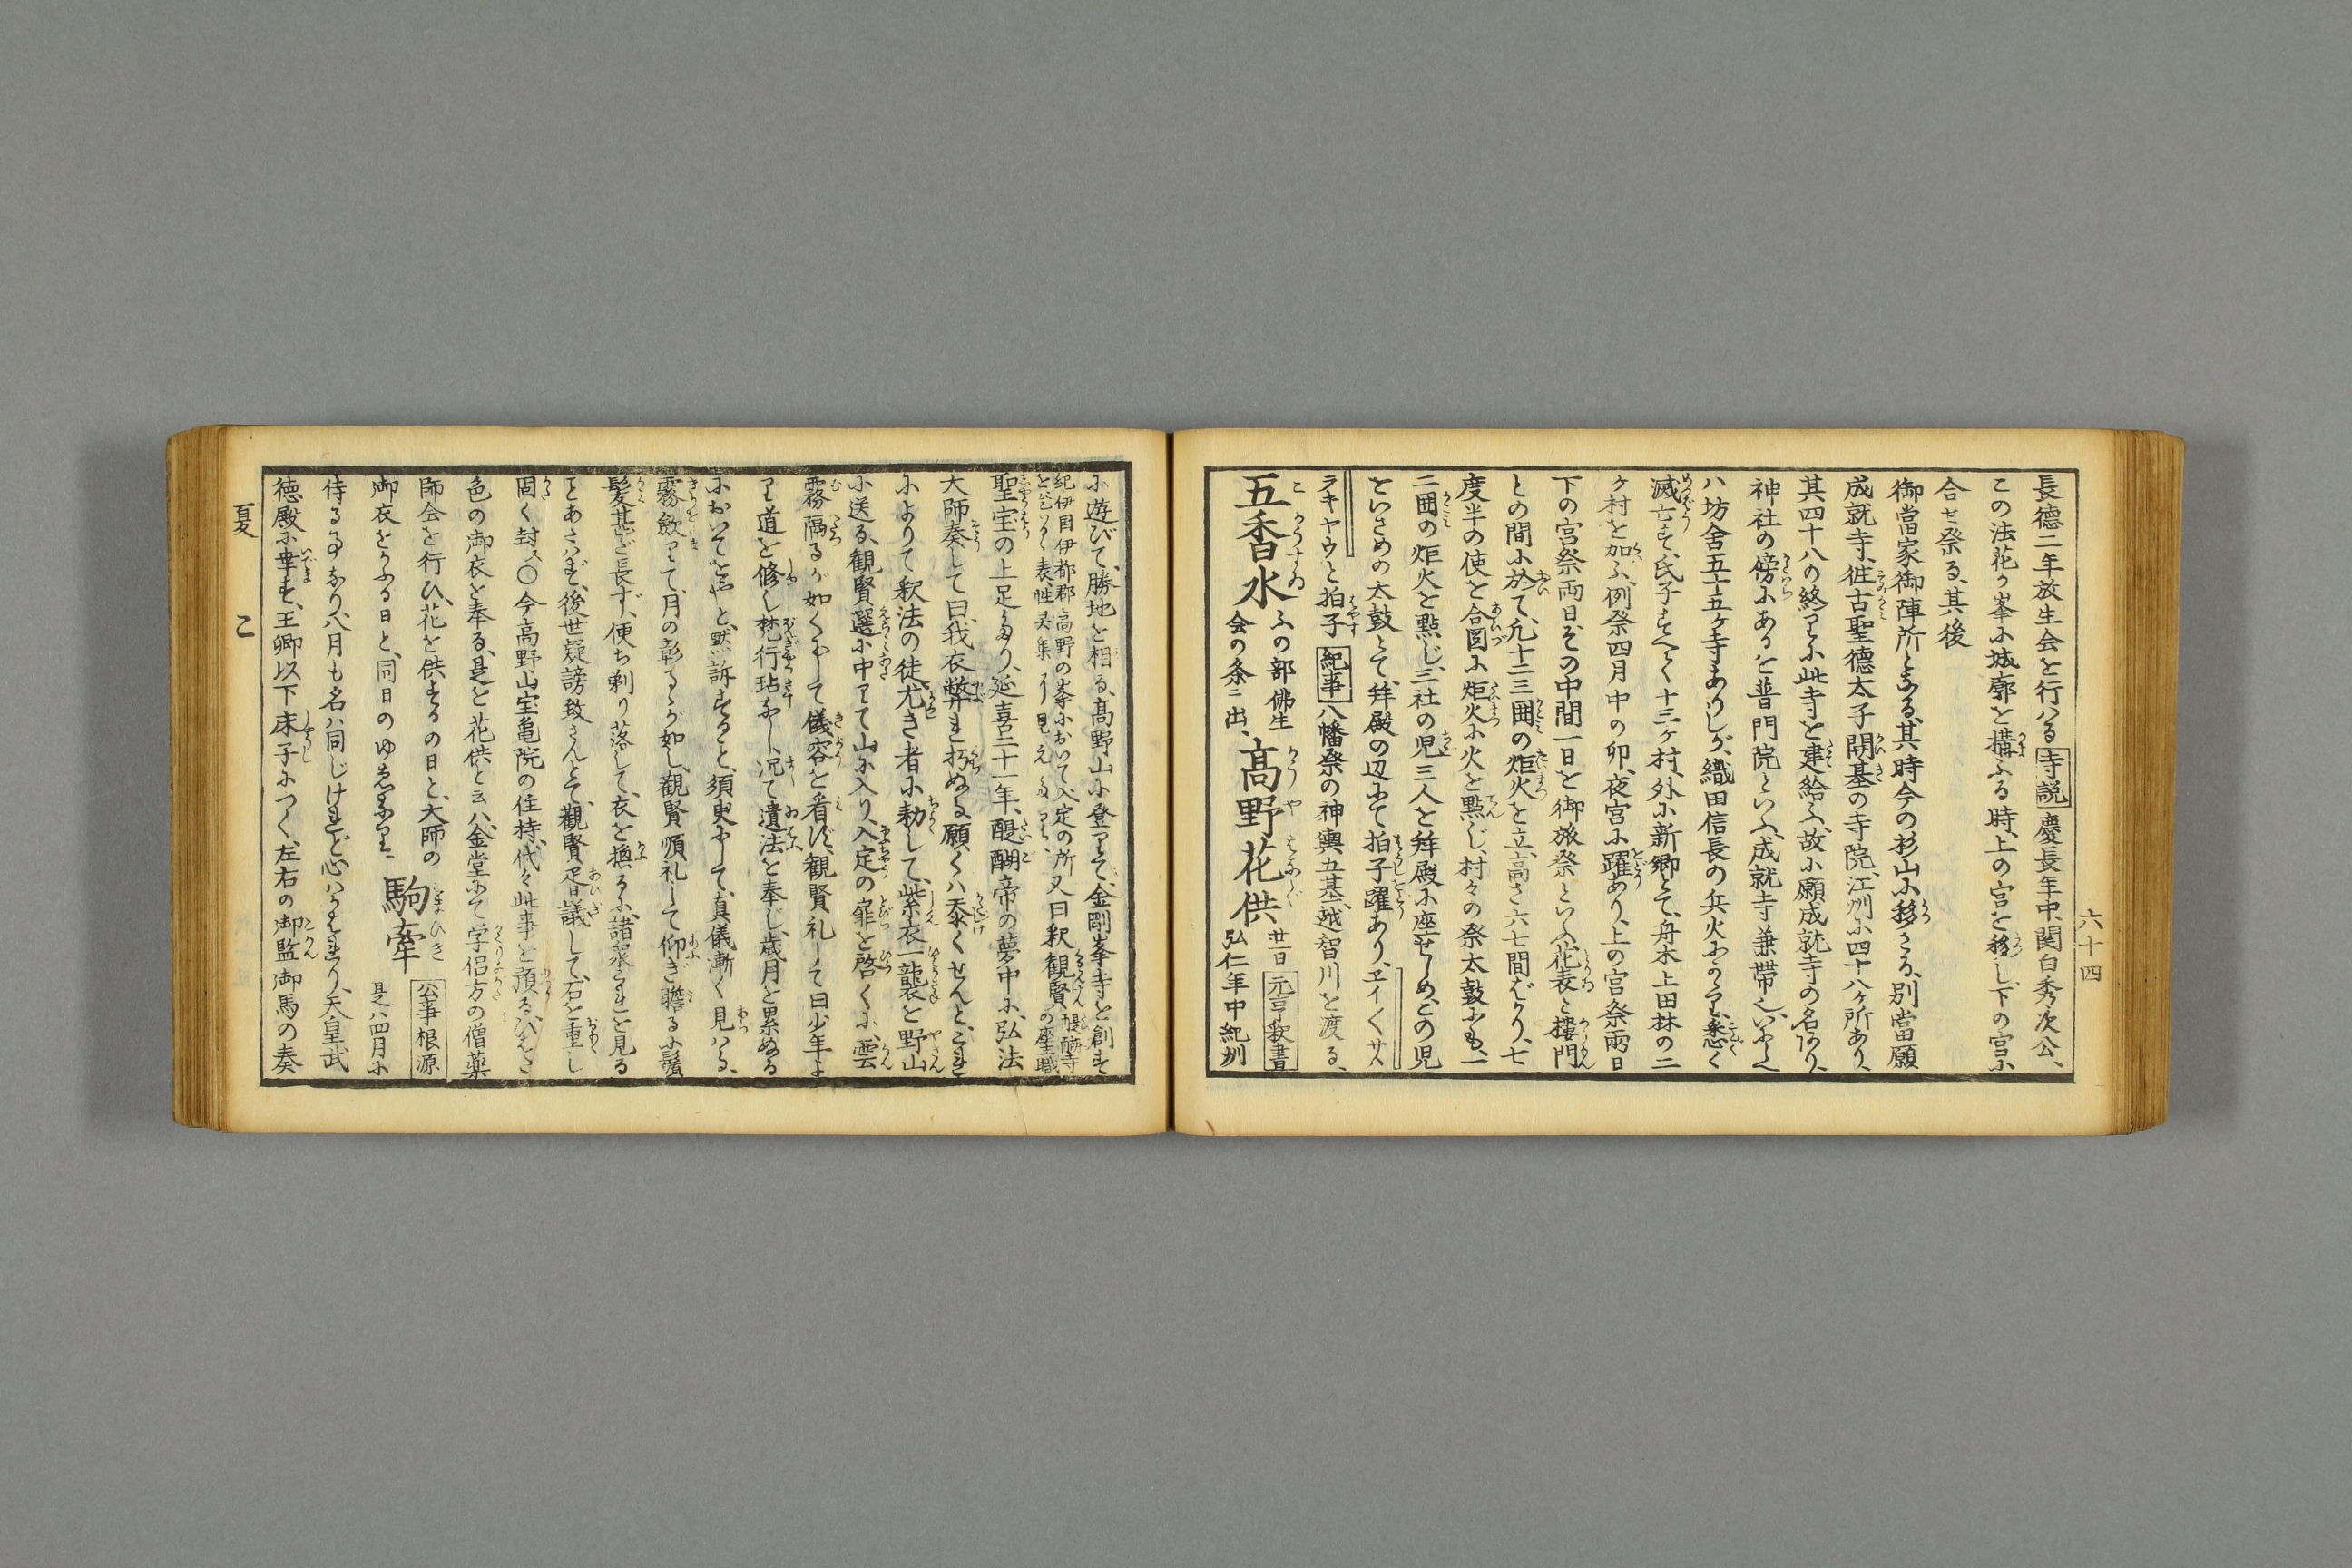 六十四
長徳二年放生会を行はる寺説慶長年中、関白秀次公、
この法花ヶ峯に城廓を構ふる時、上の宮を移し、下の宮に
合せ祭る、其後
御當家御陣所となる、其時今の杉山に移さる、別當願
成就寺、往古聖徳太子開基の寺院、江州に四十八ヶ所あり、
其四十八の終りに此寺を建給ふ、故に願成就寺の名あり、
神社の傍にあるを普門院といふ、成就寺兼帯也、いにしへ
ハ坊舎五十五ヶ寺ありしが、織田信長の兵火にかゝり、悉く
滅亡す、氏子すべて十三ヶ村、外に新郷とて、舟木上田林の二
ヶ村を加ふ、例祭四月中の卯、夜宮に躍あり、上の宮祭両日
下の宮祭両日ぞの中間一日を御旅祭といふ、花表と楼門
との間に於て、凡十三囲の炬火を立、高さ六七間ばかり、七
度半の使を合図に炬火に火を點じ、村々の祭太鼓にも、一
二囲の炬火を點じ、三社の児三人を拜殿に座せしめ、この児
をいさめの太鼓とて、拜殿の辺にて拍子躍あり、ヱイ〱サ
ラキヤウと拍子紀事八幡祭の神輿、五基、越智川を渡る、
五香水 ふの部佛生会の条ニ出、 高野花供 廿一日元亨釈書弘仁年中紀州
に遊びて、勝地を相る、高野山に登りて、金剛峯寺を創す
紀伊国伊都郡高野の峯において入定の所をといつく表性灵集より見えたり、又曰釈観賢醍醐寺の座主職
聖宝の上足なり、延喜二十一年、醍醐帝の夢中に、弘法
大師奏して曰、我衣弊れ朽ぬる、願くハ忝くせんと、これ
によりて釈法の徒尤き者に勅して、紫衣一襲を野山
に送る、観賢選に中りて山に入り、入定の扉を啓くに、雲
霧隔るが如くにして儀容を看ず、観賢礼して曰、少年よ
り道を修し梵行玷なし、况て遺法を奉じ、歳月を累ぬる
においてをや、と、黙訴すると、須臾にして、真儀漸く見はる、
霧斂りて、月の彰るゝが如し、観賢順礼して仰ぎ瞻るに鬚
髪甚ど長ず、便ち剃り落して、衣を換るに、諸衆これを見る
ことあたはず、後世疑謗致さんとて、観賢𢙣議して、石を重し
固く封ス○今高野山宝亀院の住持、代々此事を預る、ひはだ
色の御衣を奉る、是を花供と云ハ、金堂にて学侶方の僧薬
師会を行ひ、花を供するの日と、大師の
御衣をかふる日と、同日のゆゑなり、 駒牽 公事根源是ハ四月に
侍る事なり、八月も名ハ同じけれど心ハかはれり、天皇武
徳殿に幸す、王卿以下床子につく、左右の御監御馬の奏
夏
こ